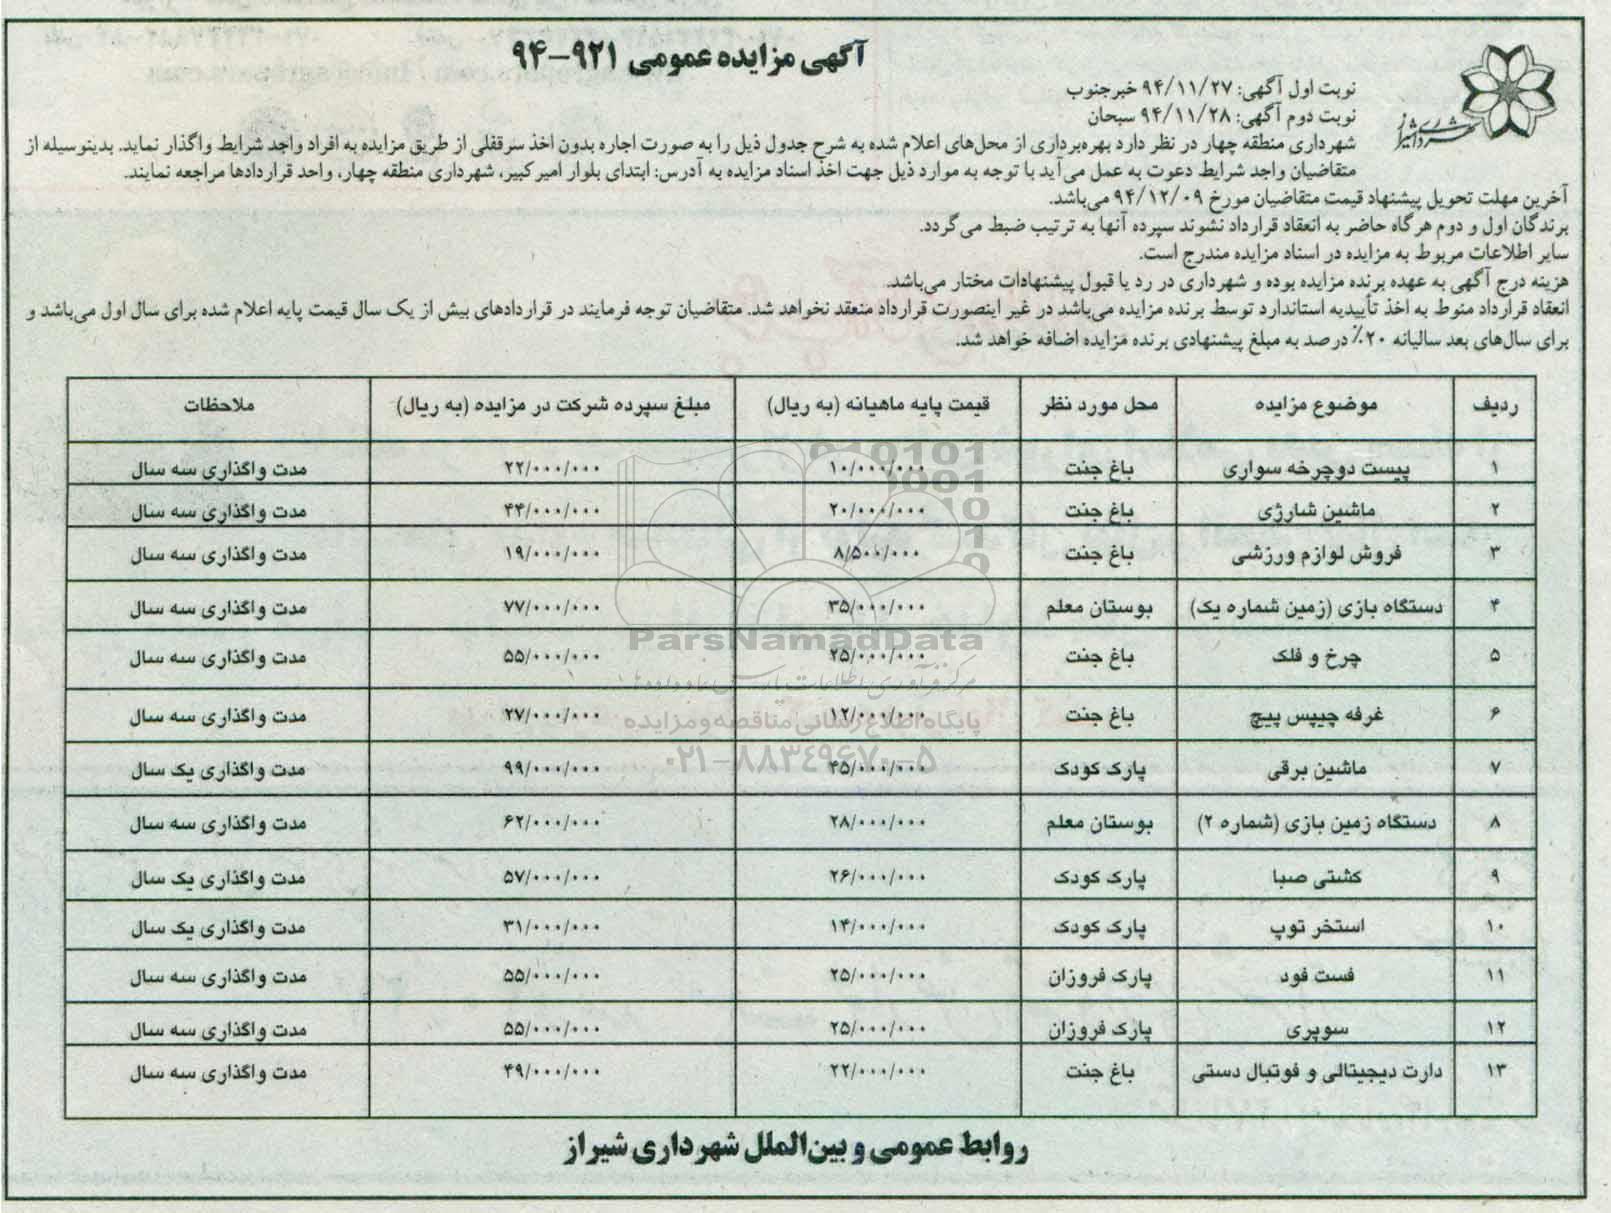 آگهی مزایده عمومی ۹۲۱-۹۴
نوبت اول آگهی: ۹۴/۱۱/۲۷ خبرجنوب
نوبت دوم آگهی: ۹۴/۱۱/۲۸ سبحان
شهرداری شیراز
شهرداری منطقه چهار در نظر دارد بهره‌برداری از محل‌های اعلام شده به شرح جدول ذیل را به صورت اجاره بدون اخذ سرقفلی از طریق مزایده به افراد واجد شرایط واگذار نماید. بدینوسیله از
متقاضیان واجد شرایط دعوت به عمل می‌آید با توجه به موارد ذیل جهت اخذ اسناد مزایده به آدرس: ابتدای بلوار امیرکبیر، شهرداری منطقه چهار، واحد قراردادها مراجعه نمایند.
آخرین مهلت تحویل پیشنهاد قیمت متقاضیان مورخ ۹۴/۱۲/۰۹ می‌باشد.
برندگان اول و دوم هرگاه حاضر به انعقاد قرارداد نشوند سپرده آنها به ترتیب ضبط می‌گردد.
سایر اطلاعات مربوط به مزایده در اسناد مزایده مندرج است.
هزینه درج آگهی به عهده برنده مزایده بوده و شهرداری در رد یا قبول پیشنهادات مختار می‌باشد.
انعقاد قرارداد منوط به اخذ تأییدیه استاندارد توسط برنده مزایده می‌باشد در غیر اینصورت قرارداد منعقد نخواهد شد. متقاضیان توجه فرمایند در قراردادهای بیش از یک سال قیمت پایه اعلام شده برای سال اول می‌باشد و
برای سال‌های بعد سالیانه ۲۰٪ درصد به مبلغ پیشنهادی برنده مزایده اضافه خواهد شد.
ردیف موضوع مزایده محل مورد نظر قیمت پایه ماهیانه (به ریال) مبلغ سپرده شرکت در مزایده (به ریال) ملاحظات
۱ پیست دوچرخه سواری باغ جنت ۱۰/۰۰۰/۰۰۰ ۲۲/۰۰۰/۰۰۰ مدت واگذاری سه سال
۲ ماشین شارژی باغ جنت ۲۰/۰۰۰/۰۰۰ ۴۴/۰۰۰/۰۰۰ مدت واگذاری سه سال
۳ فروش لوازم ورزشی باغ جنت ۸/۵۰۰/۰۰۰ ۱۹/۰۰۰/۰۰۰ مدت واگذاری سه سال
۴ دستگاه بازی (زمین شماره یک) بوستان معلم ۳۵/۰۰۰/۰۰۰ ۷۷/۰۰۰/۰۰۰ مدت واگذاری سه سال
۵ چرخ و فلک باغ جنت ۲۵/۰۰۰/۰۰۰ ۵۵/۰۰۰/۰۰۰ مدت واگذاری سه سال
۶ غرفه چیپس پیچ باغ جنت ۱۲/۰۰۰/۰۰۰ ۲۷/۰۰۰/۰۰۰ مدت واگذاری سه سال
۷ ماشین برقی پارک کودک ۴۵/۰۰۰/۰۰۰ ۹۹/۰۰۰/۰۰۰ مدت واگذاری یک سال
۸ دستگاه زمین بازی (شماره ۲) بوستان معلم ۲۸/۰۰۰/۰۰۰ ۶۲/۰۰۰/۰۰۰ مدت واگذاری سه سال
۹ کشتی صبا پارک کودک ۲۶/۰۰۰/۰۰۰ ۵۷/۰۰۰/۰۰۰ مدت واگذاری یک سال
۱۰ استخر توپ پارک کودک ۱۴/۰۰۰/۰۰۰ ۳۱/۰۰۰/۰۰۰ مدت واگذاری یک سال
۱۱ فست فود پارک فروزان ۲۵/۰۰۰/۰۰۰ ۵۵/۰۰۰/۰۰۰ مدت واگذاری سه سال
۱۲ سوپری پارک فروزان ۲۵/۰۰۰/۰۰۰ ۵۵/۰۰۰/۰۰۰ مدت واگذاری سه سال
۱۳ دارت دیجیتالی و فوتبال دستی باغ جنت ۲۲/۰۰۰/۰۰۰ ۴۹/۰۰۰/۰۰۰ مدت واگذاری سه سال
ParsNamadData
مرکز فرآوری اطلاعات پارس نماد داده‌ها
پایگاه اطلاع رسانی مناقصه و مزایده
۰۲۱-۸۸۳۴۹۶۷۰-۵
روابط عمومی و بین‌الملل شهرداری شیراز